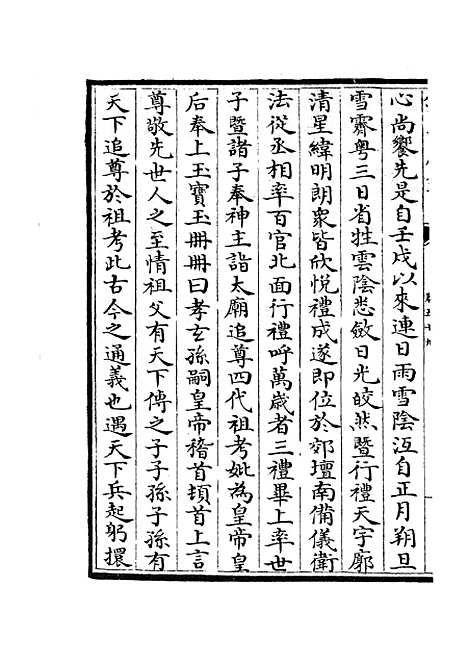 心尚饗先是自壬戌以來連日雨雪陰沍自正月朔旦
雪霽粤三日省牲雲陰悉斂日光皎然暨行禮天宇廓
清星緯明朗衆皆欣悅禮成遂即位於郊壇南備儀衛
法從丞相率百官北面行禮呼萬歲者三禮畢上率世
子暨諸子奉神主詣太廟追尊四代祖考妣為皇帝皇
后奉上玉寶玉冊冊曰孝玄孫嗣皇帝稽首頓首上言
尊敬先世人之至情祖父有天下傳之子子孫子孫有
天下追尊於祖考此古今之通義也遇天下兵起躬擐